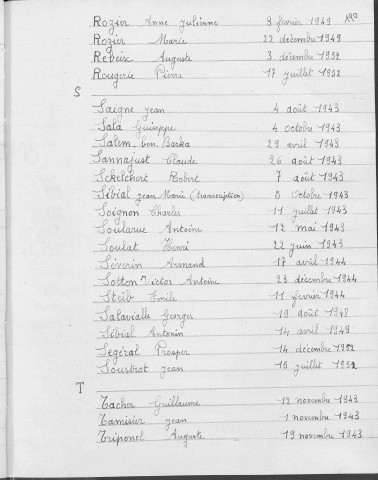 Rozier Anne Julienne 9 février 1949
Rozier Marie 22 décembre 1949
Rebeix Auguste 3 décembre 1952
Rougerie Pierre 17 juillet 1952
S
Saigne Jean 4 août 1943
Sala Guiseppe 4 octobre 1943
Salem ben Barka 29 avril 1943
Sannajust Claude 26 août 1943
Sckelchort Robert 7 août 1943
Sibial Jean Marie (transcription) 5 octobre 1943
Soignon Charles 11 juillet 1943
Soularue Antoine 12 mai 1943
Soulat Henri 22 juin 1943
Séverin Armand 17 avril 1944
Sotton Victor Antoine 23 décembre 1944
Steib Emile 11 février 1944
Salavialle Georges 19 août 1948
Sibial Antonin 14 avril 1949
Ségéral Prosper 14 décembre 1952
Soustrot Jean 15 juillet 1952
T
Tacher Guillaume 12 novembre 1943
Tamisier Jean 1 novembre 1943
Triponel Auguste 19 novembre 1943